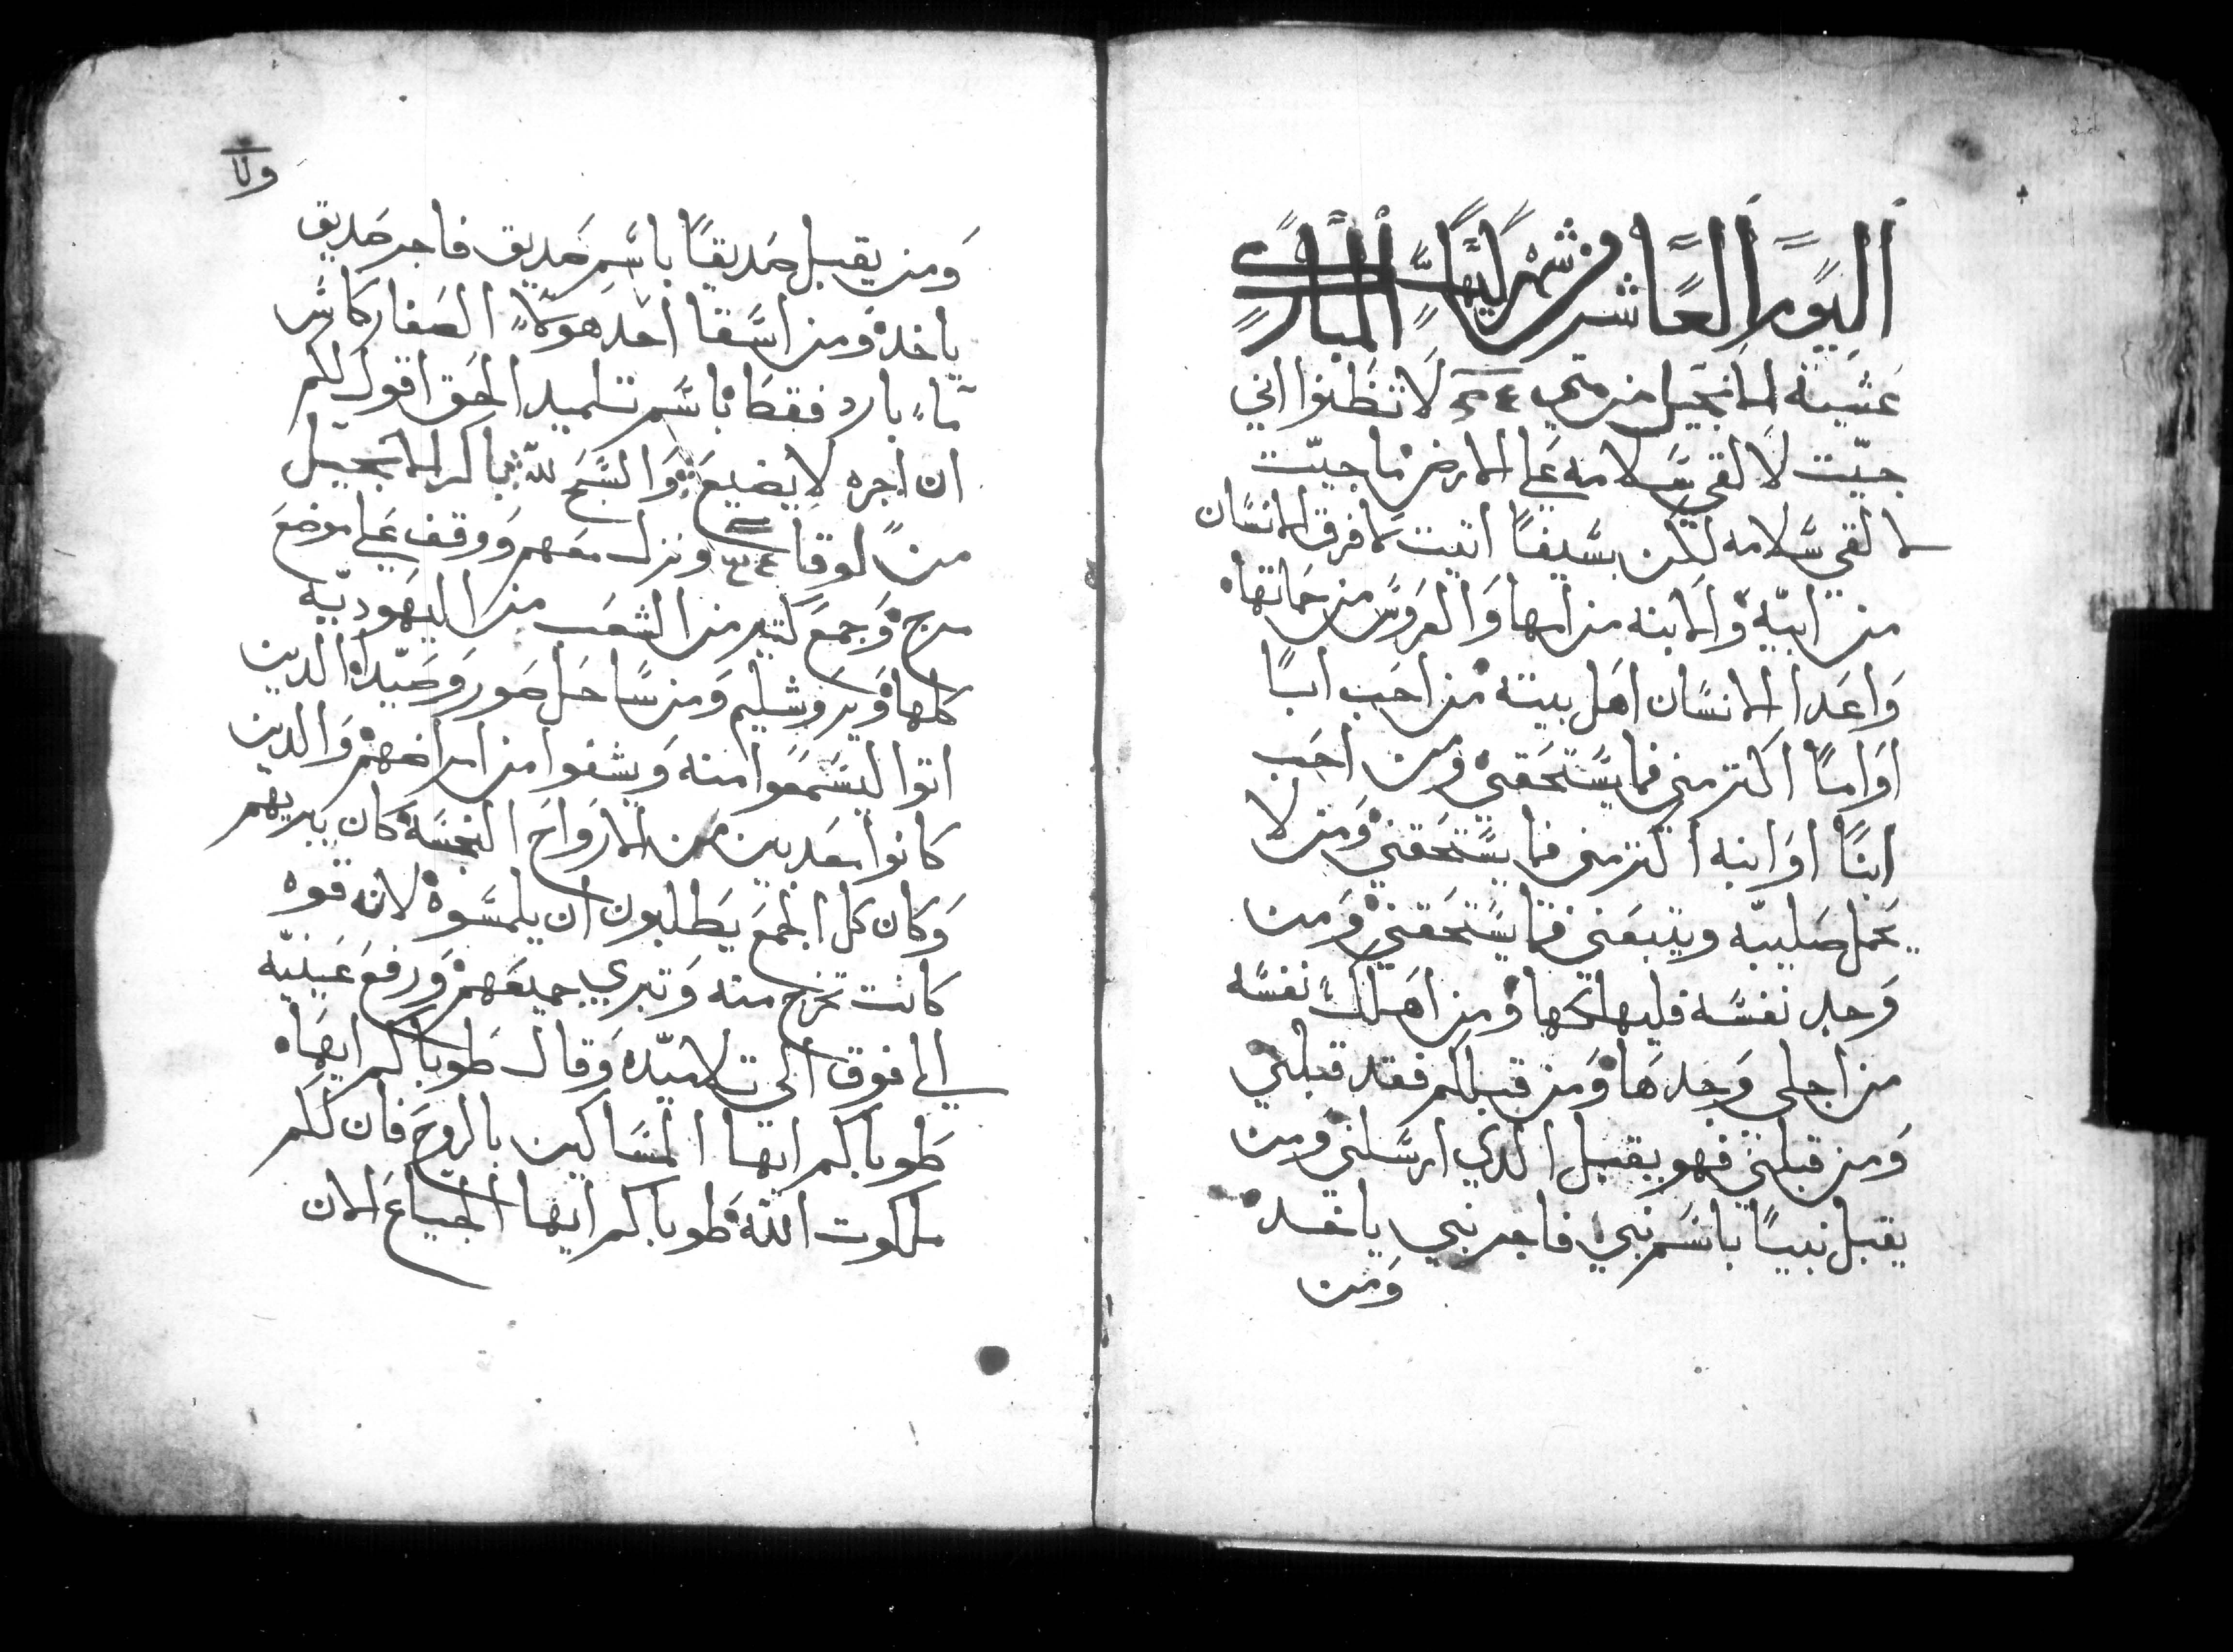 اليوم العاشر من شهر كيهك المبارك
عشيته الانجيل من متي لا تظنوا اني
جيت لالقي سلامه علي الارض ما جيت
لالقي سلامه لكن بسيفا اتيت لافرق الانسان
من ابيه والابنه من امها والعروس من حماتها
واعدا الانسان اهل بيته من احب ابا
اواما اكتر مني فما يستحقني ومن احب
ابنا او ابنه اكتر مني فما يستحقني ومن لا
يحمل صليبه ويتبعني فما يستحقني ومن
وجد نفسه فليهلكها ومن اهلك نفسه
من اجلي وجدها ومن قبلكم فقد قبلني
ومن قبلني فهو يقبل الدي ارسلني ومن
يقبل نبيا باسم نبي فاجر نبي ياخده
ومن
ومن يقبل صديقا باسم صديق فاجر صديق
ياخده ومن اسقا احد هولاء الصغار كاس
ماء بارد فقط باسم تلميد الحق اقول لكم
ان اجره لا يضيع والسبح لله باكر الانجيل
من لوقا ونزل معهم ووقف علي موضع
مرج وجمع كتير من الشعب من اليهوديه
كلها ويروشليم ومن ساحل صور وصيدا الدين
اتوا ليسمعوا منه ويشفوا من امراضهم والدين
كانوا معدبين من الارواح النجسه كان يبريهم
وكان كل الجمع يطلبون ان يلمسوه لانه قوه
كانت تخرج منه وتبري جميعهم ورفع عينيه
الي فوق الي تلاميده وقال طوباكم ايها
طوباكم ايها المساكين بالروح فان لكم
ملكوت الله طوباكم ايها الجياع الان